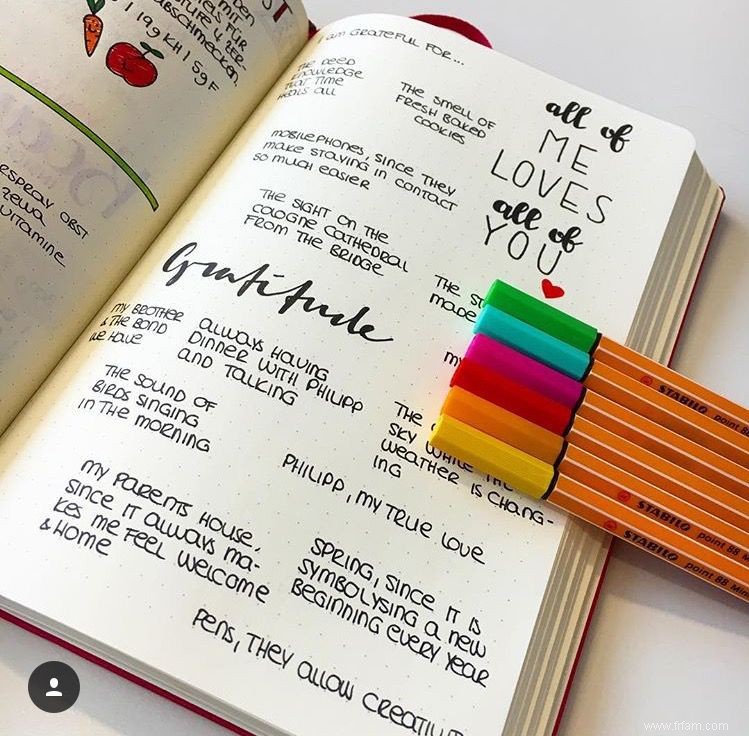 MIT
FÜR
ABSCHMECKEN
1 19g KH 1 5g F
OBST
ZEWA
VITAMINE
I AM GRATEFUL FOR...
THE DEED
KNOWLEDGE
THAT TIME
HEALS ALL
THE SMELL OF
FRESH BAKED
COOKIES
all of
ME
LOVES
all of
YOU
MOBILEPHONES, SINCE THEY
MAKE STAYING IN CONTACT
SO MUCH EASIER
THE SIGHT ON THE
COLOGNE CATHEDRAL
FROM THE BRIDGE
THE
MADE
Gratitude
MY BROTHER
& THE BOND
WE HAVE
ALWAYS HAVING
DINNER WITH PHILIPP
AND TALKING
THE SOUND OF
BIRDS SINGING
IN THE MORNING
THE
SKY WHILE THE
WEATHER IS CHANG-
ING
PHILIPP, MY TRUE LOVE
MY PARENTS HOUSE,
SINCE IT ALWAYS MA-
KES ME FEEL WELCOME
& HOME
SPRING, SINCE IT IS
SYMBOLYSING A NEW
BEGINNING EVERY YEAR
PENS, THEY ALLOW
STABILO point 88
STABILO point 88
STABILO point 88 Mini
www.frfam.com